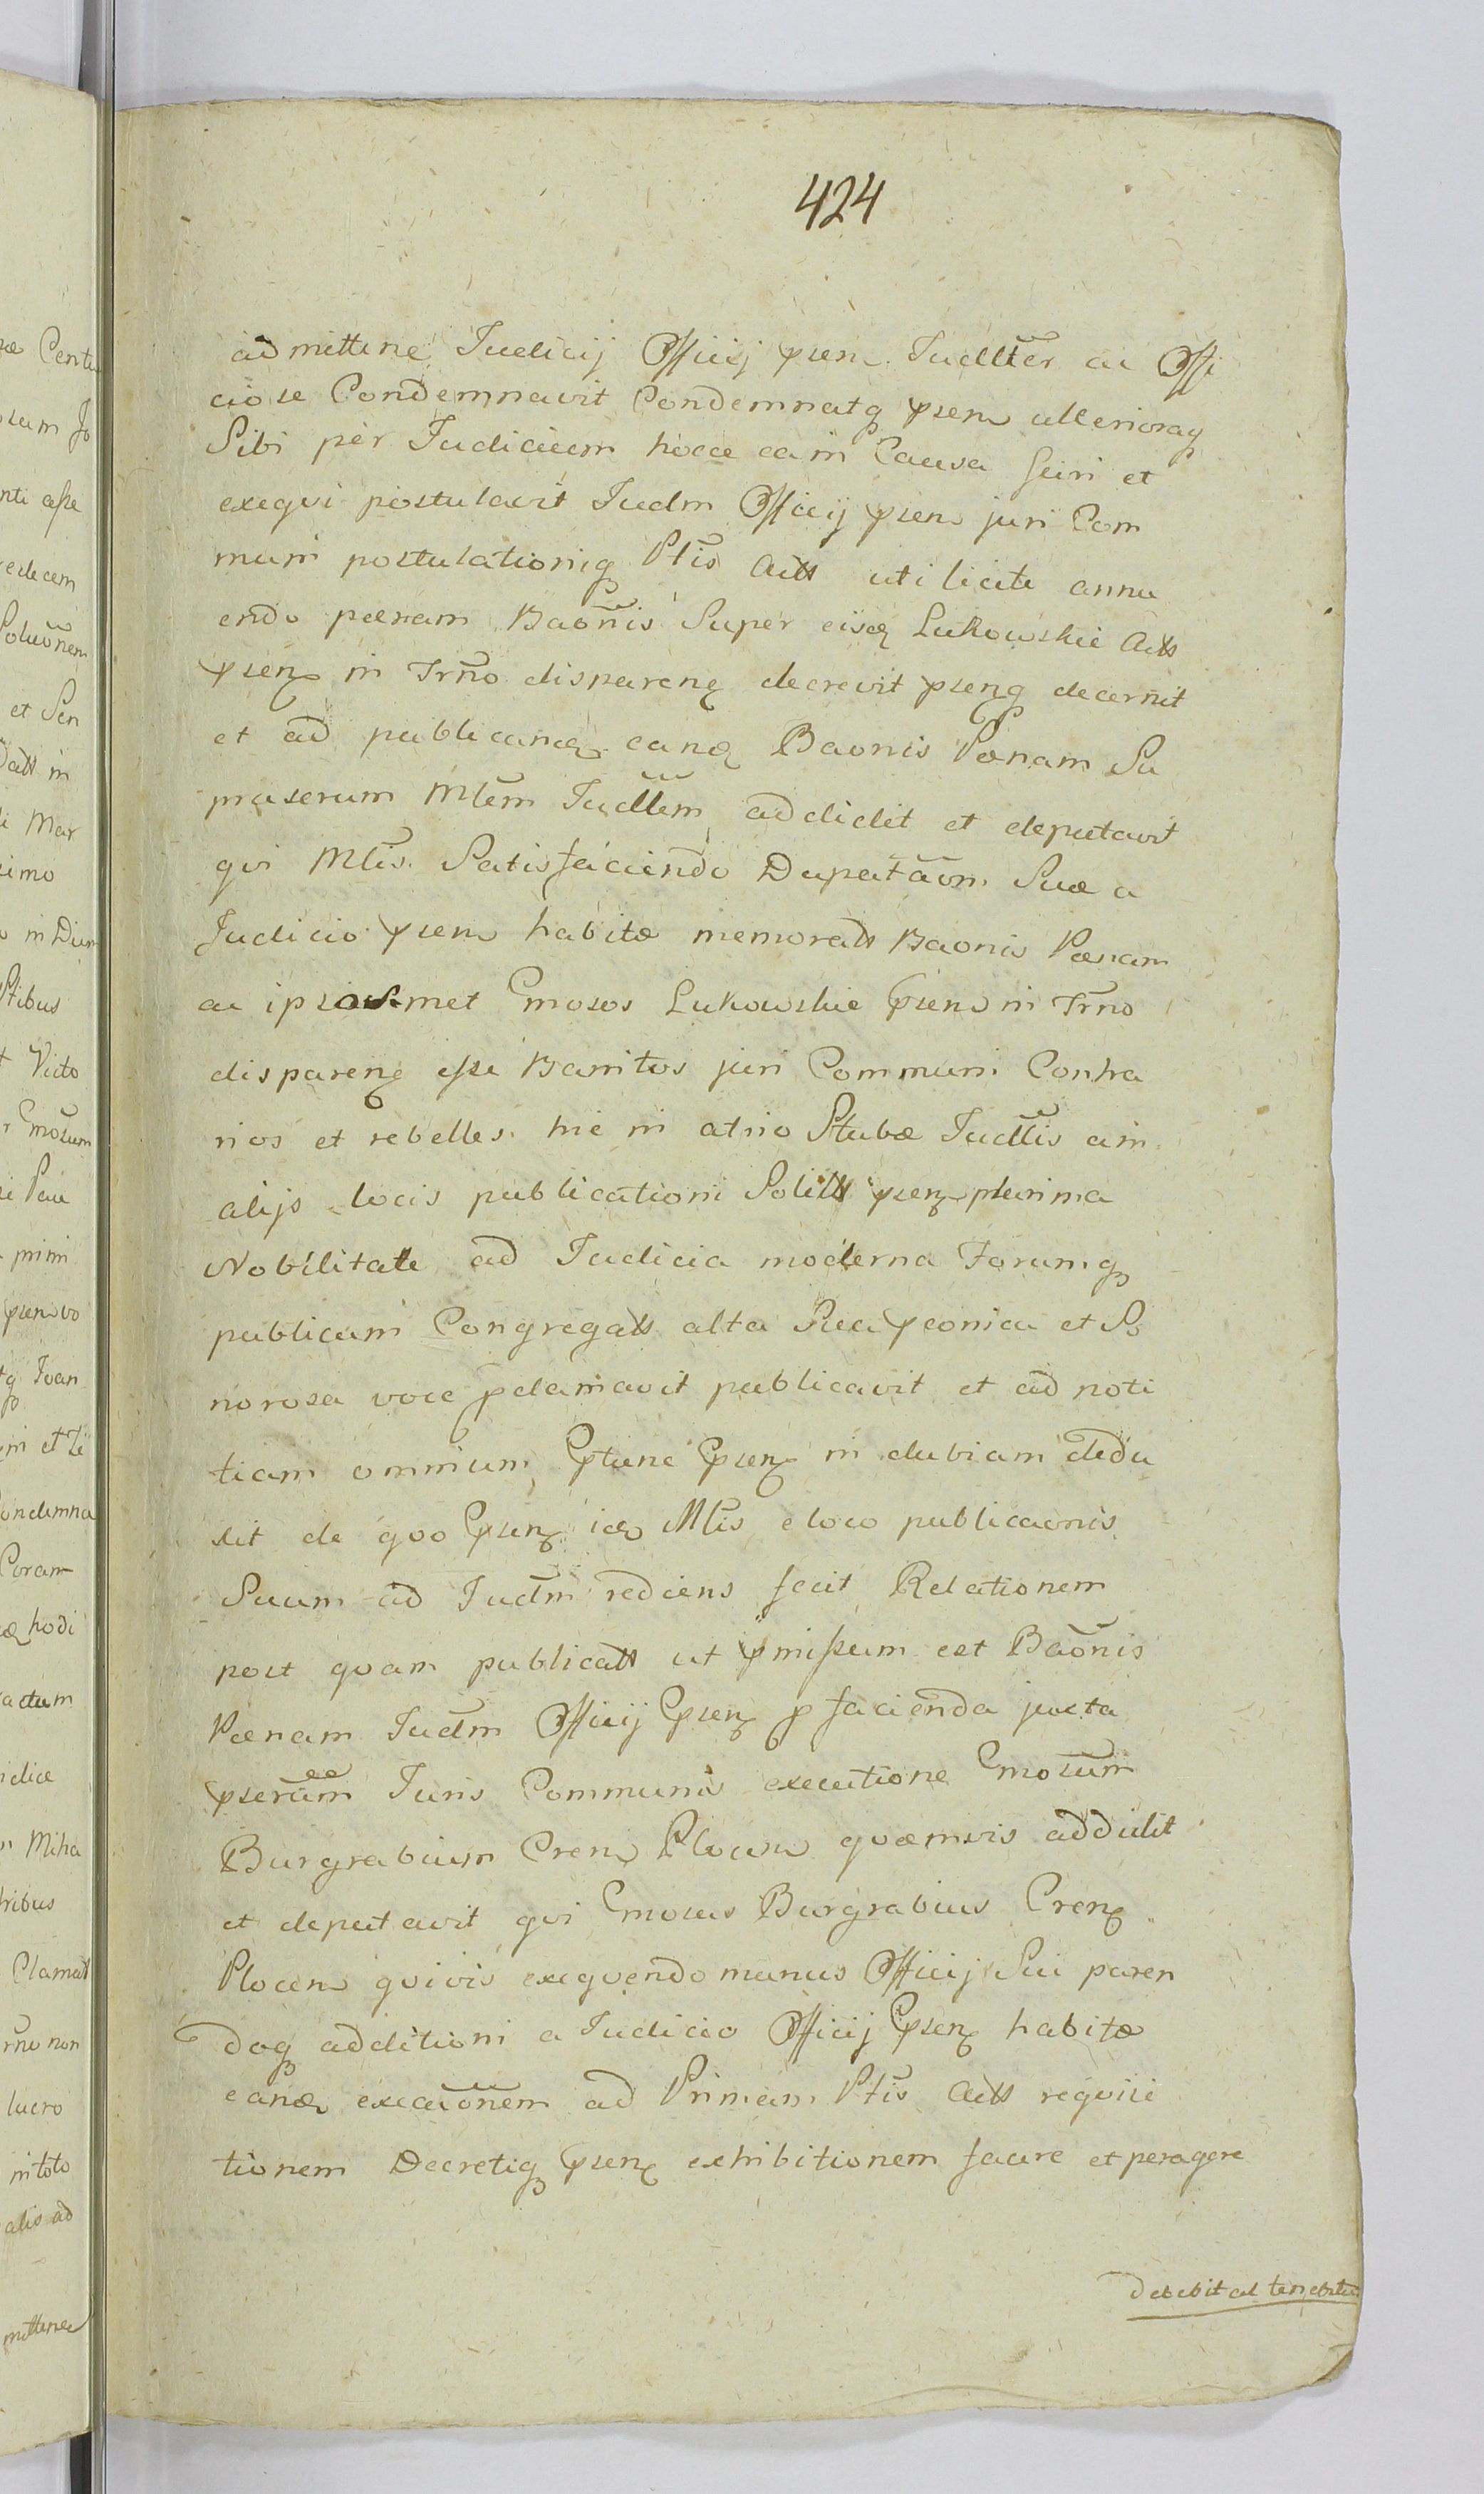 424
admitten Judicij Officij psen. Judllter ac Offi
ciose Condemnavit Condemnatq psen ulterioraq
Sibi per Judicium hocce ea in Causa fieri et
exequi postulavit Judm Officij psen juri Com
muni postulationiq Ptis Actt uti licite annu
endo pœnam Baonis Super eisd Lukowskie Actt
psen in Trno disparen decrevit psenq decernit
et ad publicand eand Baonis Pœnam Su
praserum Mlem Judllem addidit et deputavit
qvi Mlis Satisfaciendo Duputaom Suæ a
Judicio psen habitæ memoratt Baonis Pœnam
ac ipsosmet Gmosos Lukowskie psen in Trno
disparen esse Bannitos juri Communi Contra
rios et rebelles hic in atrio Stubæ Judllis a in
alijs locis publicationi Solitt psen plurima
Nobilitate ad Judicia moderna Forumq
publicum Congregatt alta Sua peonica et So
norosa voce pclamavit publicavit et ad noti
tiam omnium ptunc psen in dubiam dedu
xit de qvo psen id Mlis e loco publicaonis
Suum ad Judm rediens fecit Relationem
post qvam publicatt ut pmissum est Baonis
Pœnam Judm Officij psen p facienda juxta
pserum Juris Communis executione Gmosum
Burgrabium Cren Plocen qvæmvis addidit
et deputavit qvi Gmosus Burgrabius Cren
Plocen qvivis exeqvendo munus Officij Sui paren
doq additioni a Judicio Officij psen habitæ
eand execuonem ad Primam Ptis Actt reqvisi
tionem Decretiq psen exhibitionem facere et peragere
debebit et tenebitur